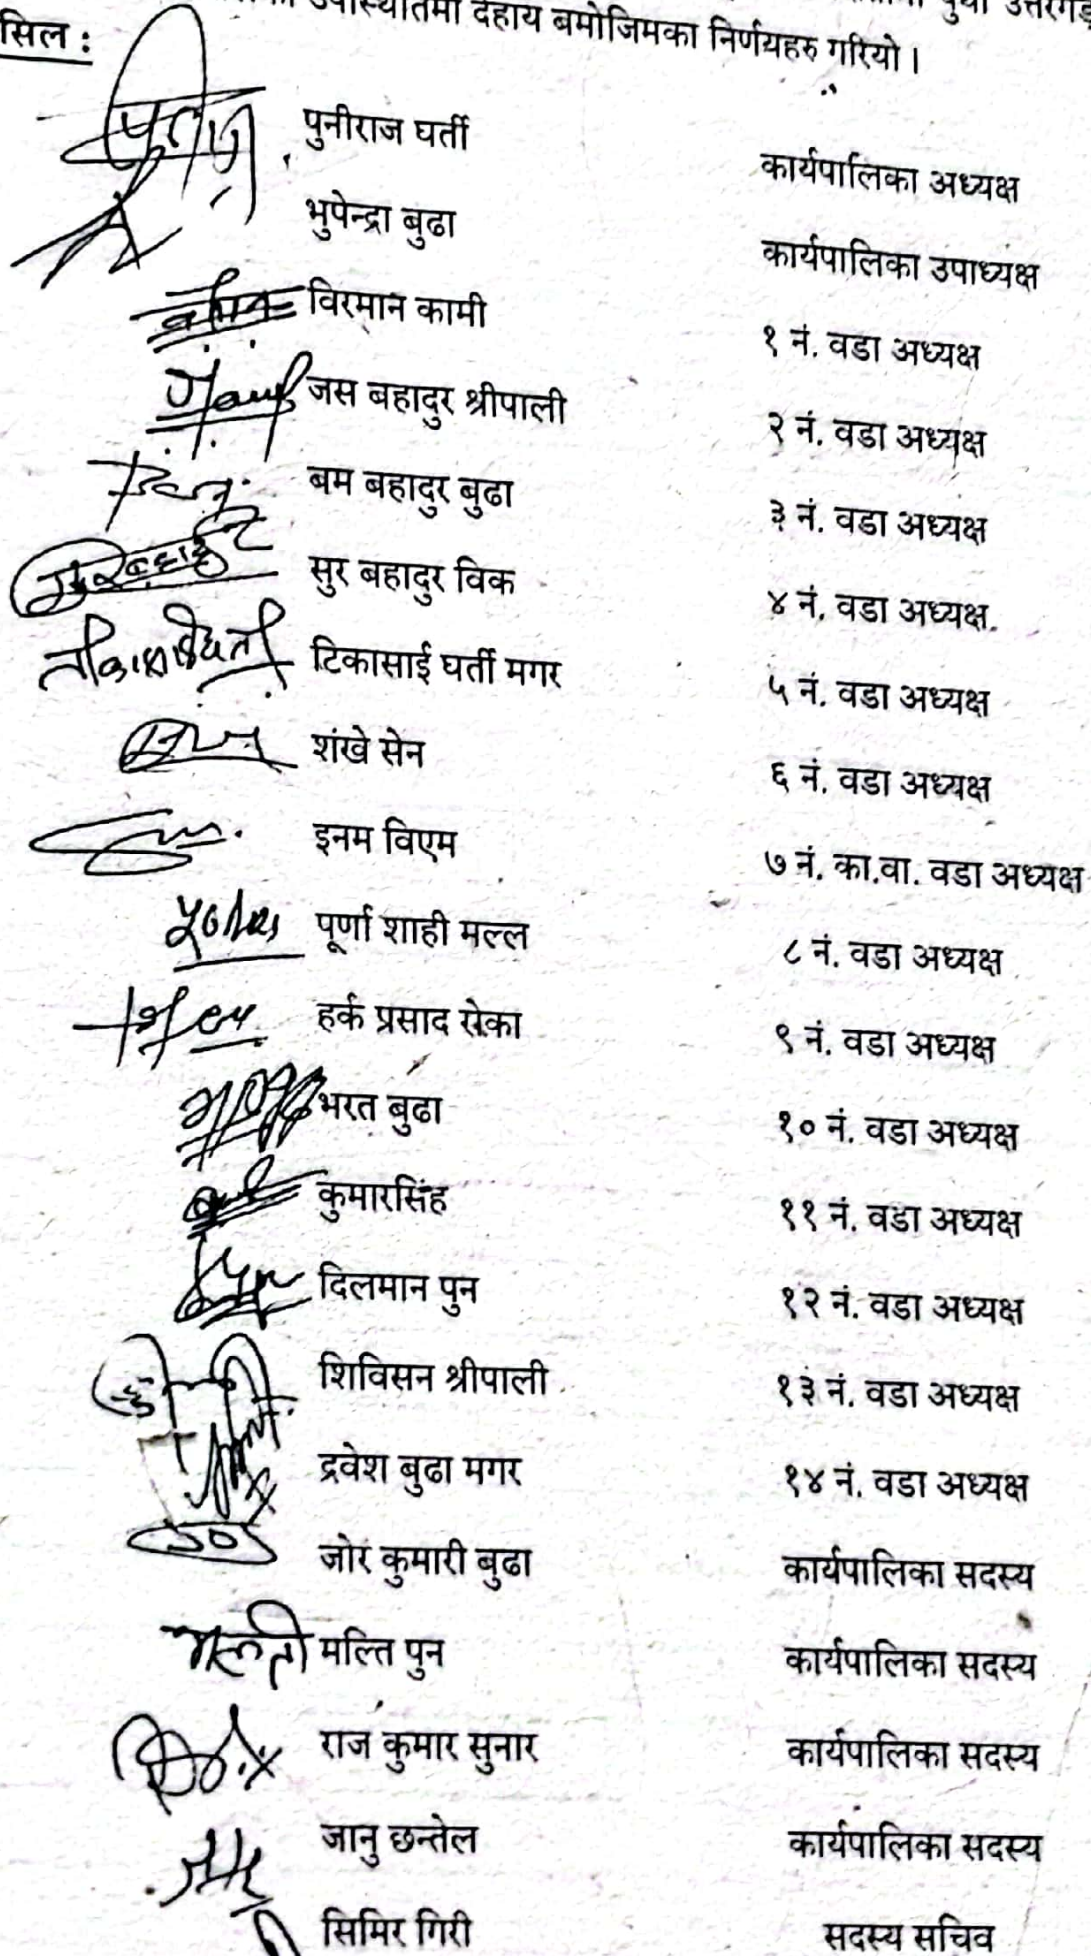 उपस्थितिमा देहाय बमोजिमका निर्णयहरु गरियो ।
सिल :
पुनीराज घर्ती कार्यपालिका अध्यक्ष
भुपेन्द्रा बुढा कार्यपालिका उपाध्यक्ष
विरमान कामी १ नं. वडा अध्यक्ष
जस बहादुर श्रीपाली २ नं. वडा अध्यक्ष
बम बहादुर बुढा ३ नं. वडा अध्यक्ष
सुर बहादुर विक ४ नं. वडा अध्यक्ष.
टिकासाई घर्ती मगर ५ नं. वडा अध्यक्ष
शंखे सेन ६ नं. वडा अध्यक्ष
इनम विएम ७ नं. का.वा. वडा अध्यक्ष
पूर्णा शाही मल्ल ८ नं. वडा अध्यक्ष
हर्क प्रसाद रोका ९ नं. वडा अध्यक्ष
भरत बुढा १० नं. वडा अध्यक्ष
कुमारसिंह ११ नं. वडा अध्यक्ष
दिलमान पुन १२ नं. वडा अध्यक्ष
शिविसन श्रीपाली १३ नं. वडा अध्यक्ष
द्रवेश बुढा मगर १४ नं. वडा अध्यक्ष
जोर कुमारी बुढा कार्यपालिका सदस्य
मल्ति पुन कार्यपालिका सदस्य
राज कुमार सुनार कार्यपालिका सदस्य
जानु छन्तेल कार्यपालिका सदस्य
सिमिर गिरी सदस्य सचिव